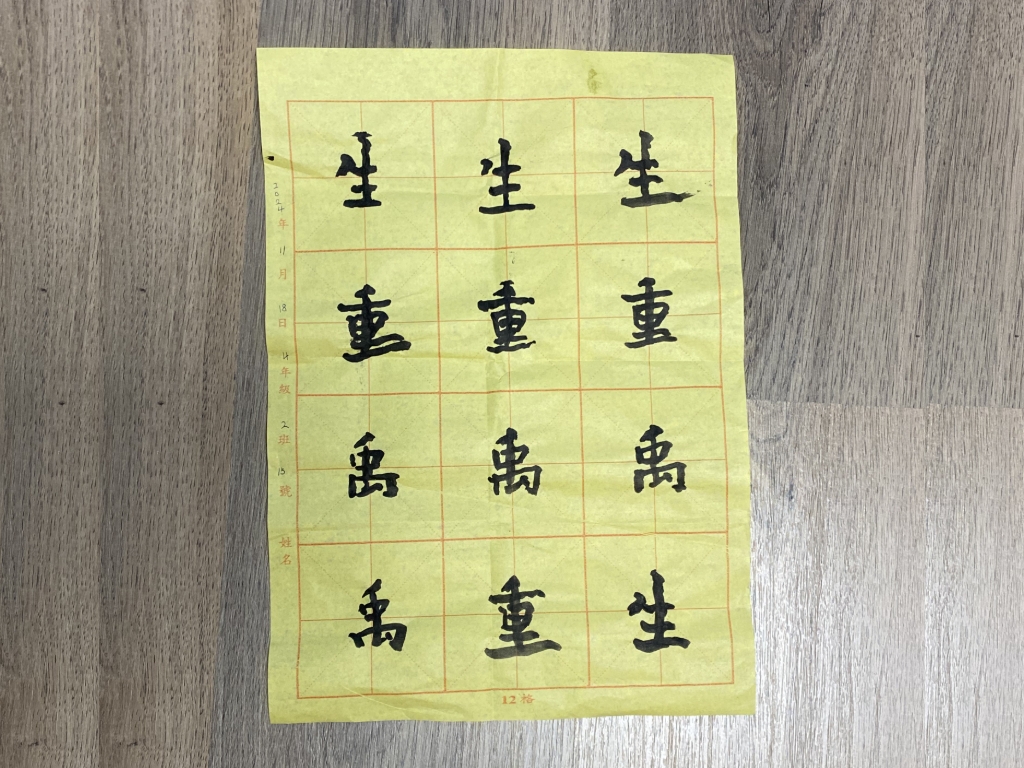 生 生 生
重 重 重
禹 禹 禹
禹 重 生
2024年 11月 18日 4年級 2班 號 姓名
12格